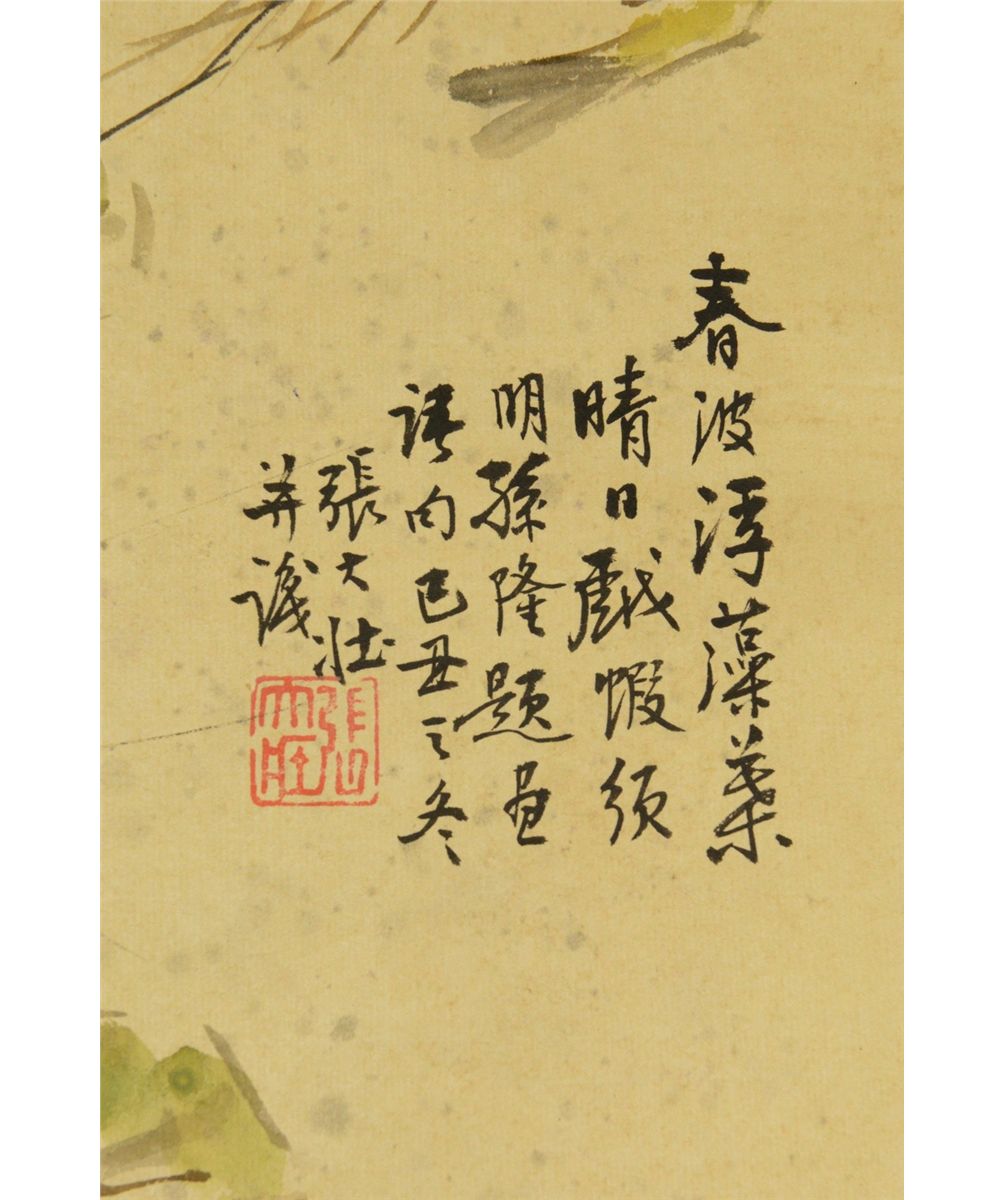 春波浮藻葉
晴日戲蝦須
明孫隆題畫
詩句己丑之冬
張大壯
并識